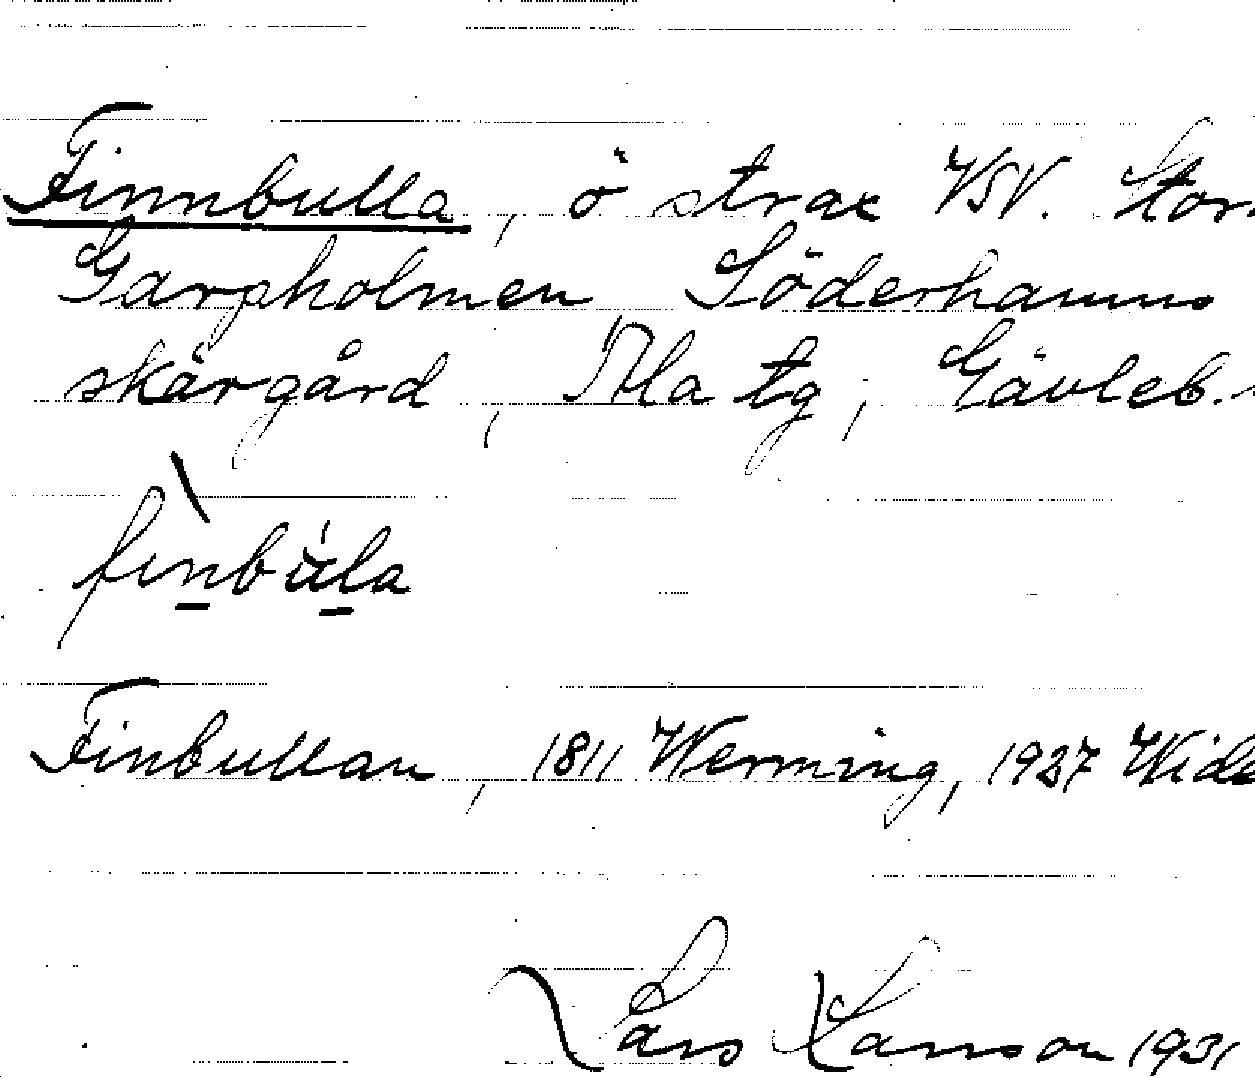 Finnbulla, ö strax VSV. Stor
Garpholmen Söderhamns
skärgård, Ala tg, Gävleb.
finbula
Finbullan, 1811 Werming, 1937 Wide
Lars Larsson 1931